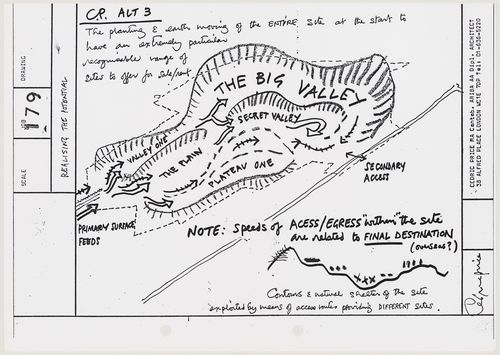 C.P. ALT 3
The planting & earth moving of the ENTIRE site at the start to
have an extremely particular
recognisable range of
sites to offer for sale/rent
DRAWING
JOB
179
SCALE
REALISING THE POTENTIAL
THE BIG VALLEY
SECRET VALLEY
VALLEY ONE
THE PLAIN
PLATEAU ONE
SECONDARY
ACCESS
PRIMARY SURFACE
FEEDS
NOTE: Speeds of ACESS/EGRESS "within" the site
are related to FINAL DESTINATION
(overseas?)
Contours & natural shelter of the site
exploited by means of access routes providing DIFFERENT sites.
CEDRIC PRICE MA Cantab. ARIBA AA Dipl. ARCHITECT
38 ALFRED PLACE LONDON WC1E 7DP Tel: 01-636-5220